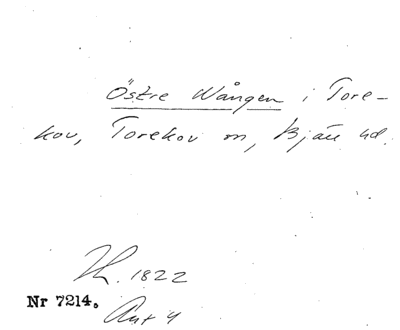 Östre Wången i Tore-
kov, Torekov sn, Bjäre hd.
Lh. 1822
Nr 7214.
Ant 4